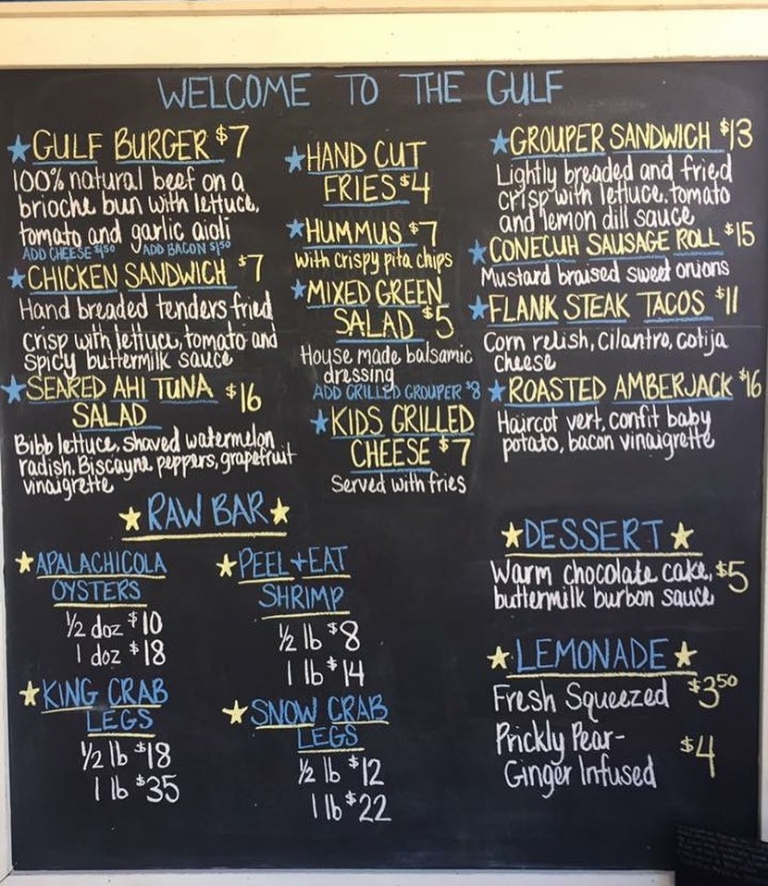 WELCOME TO THE GULF
GULF BURGER $7
100% natural beef on a
brioche bun with lettuce,
tomato and garlic aioli
ADD CHEESE $1.50 ADD BACON $1.50
CHICKEN SANDWICH $7
Hand breaded tenders fried
crisp with lettuce, tomato and
spicy buttermilk sauce
SEARED AHI TUNA $16
SALAD
Bibb lettuce, shaved watermelon
radish, Biscayne peppers, grapefruit
vinaigrette
HAND CUT
FRIES $4
HUMMUS $7
with crispy pita chips
MIXED GREEN
SALAD $5
House made balsamic
dressing
ADD GRILLED GROUPER $8
KIDS GRILLED
CHEESE $7
Served with fries
GROUPER SANDWICH $13
Lightly breaded and fried
crisp with lettuce, tomato
and lemon dill sauce
CONECUH SAUSAGE ROLL $15
Mustard braised sweet onions
FLANK STEAK TACOS $11
Corn relish, cilantro, cotija
cheese
ROASTED AMBERJACK $16
Haircot vert, confit baby
potato, bacon vinaigrette
RAW BAR
APALACHICOLA
OYSTERS
1/2 doz $10
1 doz $18
KING CRAB
LEGS
1/2 lb $18
1 lb $35
PEEL + EAT
SHRIMP
1/2 lb $8
1 lb $14
SNOW CRAB
LEGS
1/2 lb $12
1 lb $22
DESSERT
Warm chocolate cake, $5
buttermilk burbon sauce
LEMONADE
Fresh Squeezed $3.50
Prickly Pear-
Ginger Infused $4